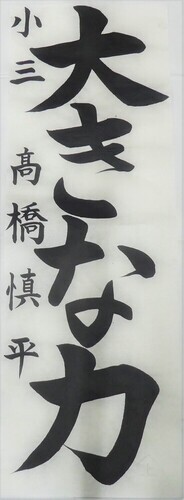 大きな力
小三 髙橋慎平